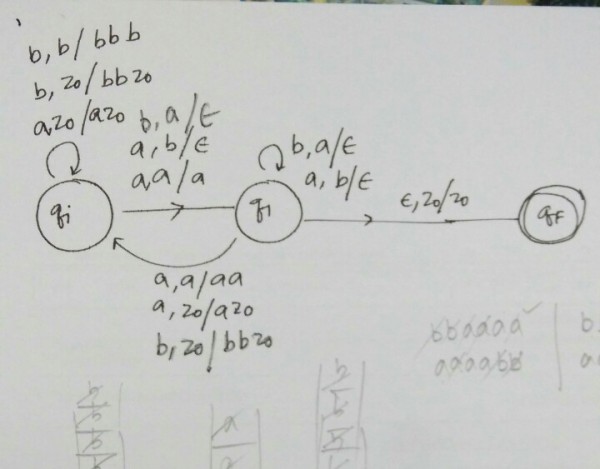 b, b/bbb
b, z0/bbz0
a,z0/az0
b, a/ε
a, b/ε
a,a/a
b, a/ε
a, b/ε
qi
q1
ε, z0/z0
qF
a, a/aa
a, z0/az0
b, z0/bbz0
bbaaaa ✓
b
aaaabb
a